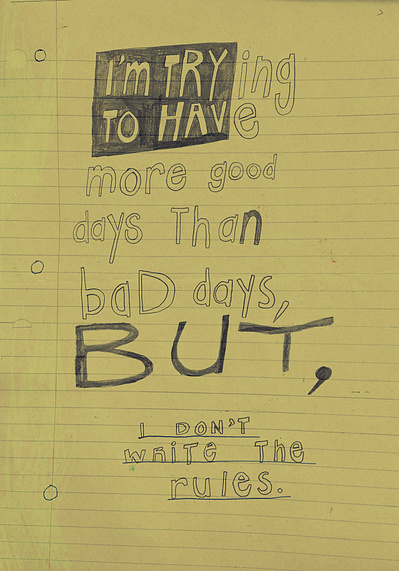 I'm TRYing
TO HAVe
more good
days Than
baD days,
BUT,
I DON'T
wRiTe The
rules.